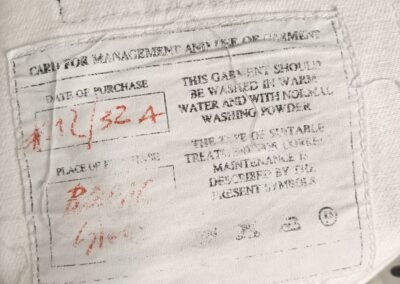 CARD FOR MANAGEMENT AND USE OF GARMENT
DATE OF PURCHASE
PLACE OF
THIS GARMENT SHOULD
BE WASHED IN WARM
WATER AND WITH NORMAL
WASHING POWDER
THE TYPE OF SUITABLE
TREATMENT FOR CORRECT
MAINTENANCE IS
DESCRIBED BY THE
PRESENT SYMBOLS